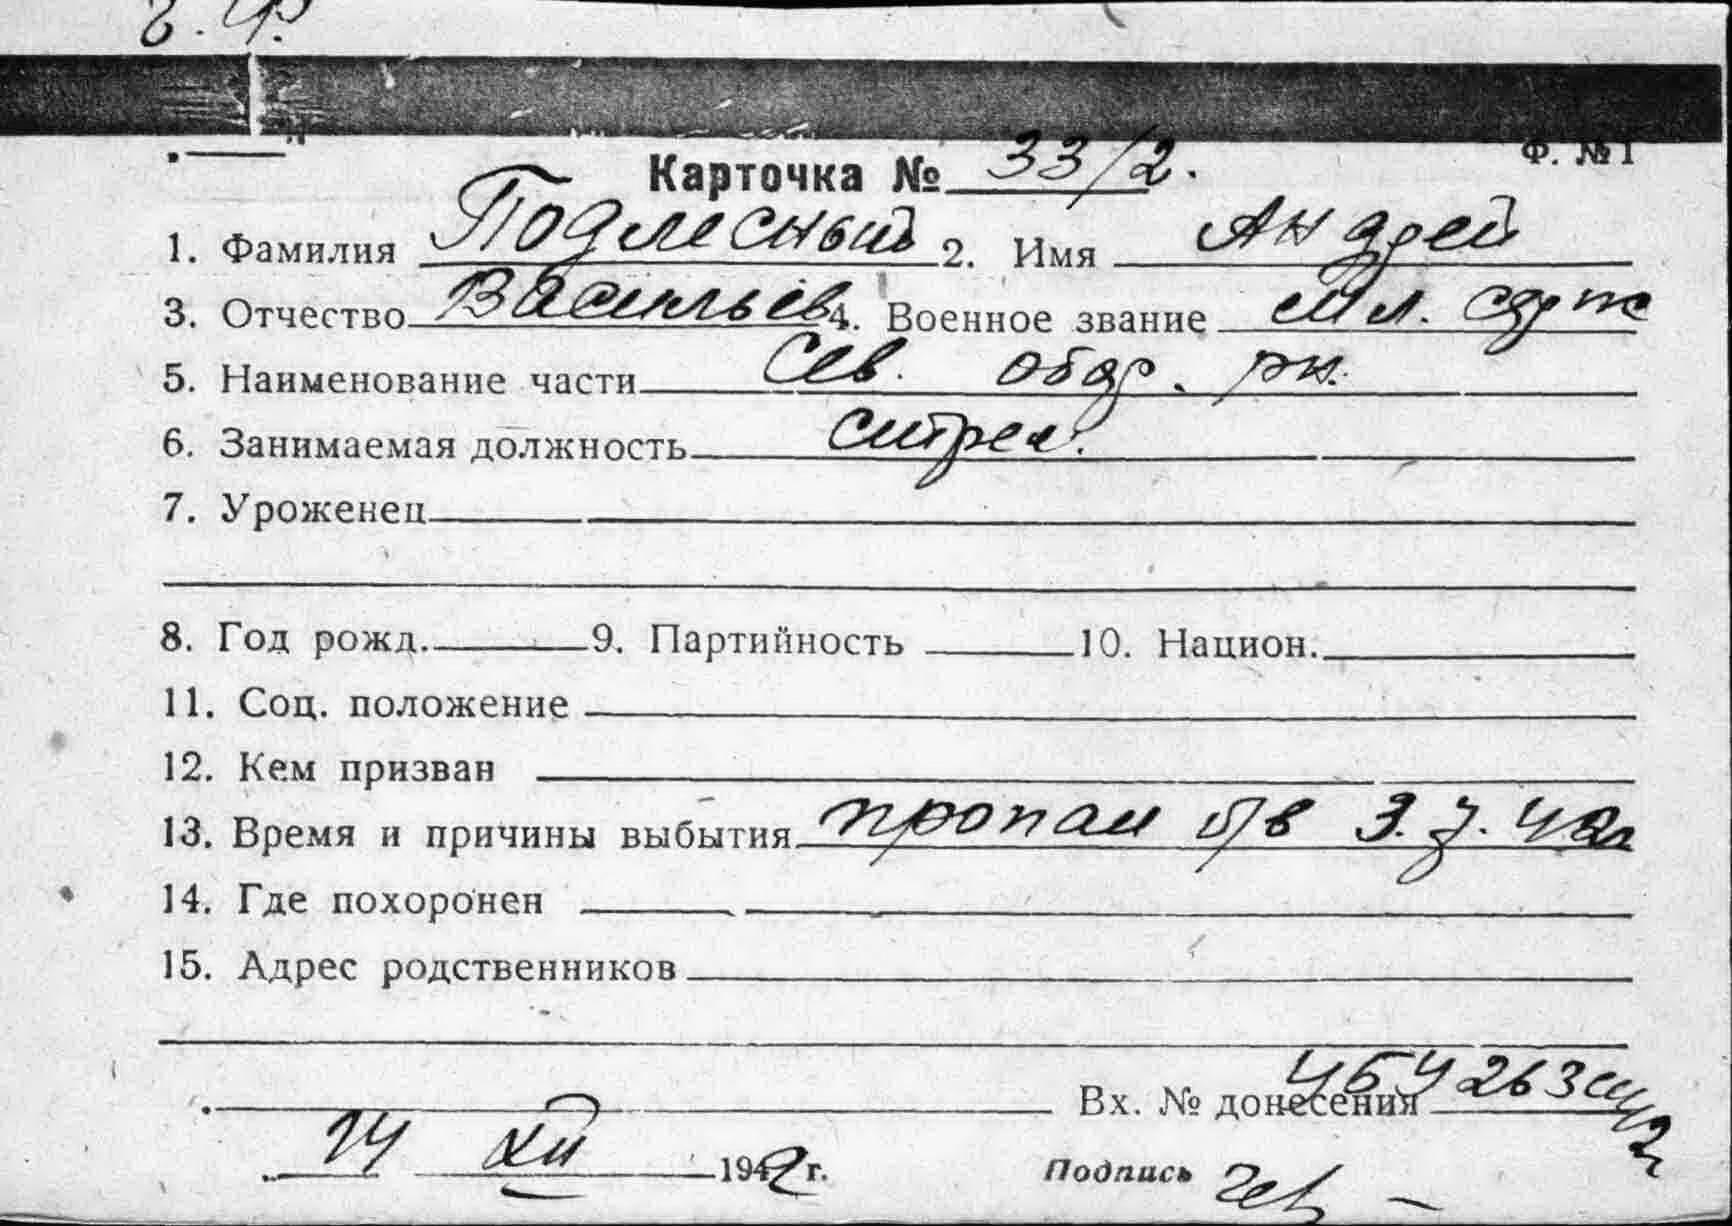 Ч.Ф.
Ф. № 1
Карточка № 33/2.
1. Фамилия Подлесный 2. Имя Андрей
3. Отчество Васильев 4. Военное звание мл. серж
5. Наименование части Сев. обор. рн.
6. Занимаемая должность стрел.
7. Уроженец
8. Год рожд. 9. Партийность 10. Национ.
11. Соц. положение
12. Кем призван
13. Время и причины выбытия пропал б/в 3.7.42г
14. Где похоронен
15. Адрес родственников
Вх. № донесения
14 XII 1942 г.
Подпись